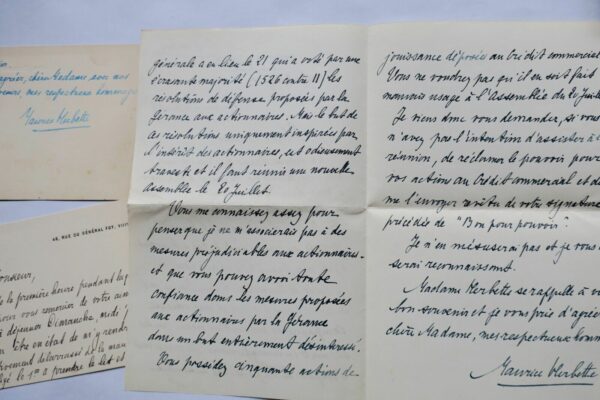 agréer, chère Madame, avec mes
mes respectueux hommages
Maurice Herbette
46, RUE DU GÉNÉRAL FOY, VIII
Monsieur,
la première heure pendant
vous remercier de votre
à déjeuner Dimanche, midi
être en état de m'y rendre
débarrassé de la
le 1er à prendre le lait et
générale a eu lieu le 21 qui a voté par une
écrasante majorité (1526 contre 11) les
résolutions de défense proposées par la
Gérance aux actionnaires. Mais le but de
ces résolutions uniquement inspirées par
l'intérêt des actionnaires, est odieusement
travesti et il faut réunir une nouvelle
assemblée le 20 Juillet.
Vous me connaissez assez pour
penser que je ne m'associerais pas à des
mesures préjudiciables aux actionnaires.
et que vous pouvez avoir toute
confiance dans les mesures proposées
aux actionnaires par la Gérance
dans un but entièrement désintéressé.
Vous possédez cinquante actions de
jouissance déposées au Crédit commercial
Vous ne voudrez pas qu'il en soit fait
mauvais usage à l'Assemblée du 20 Juil
Je viens donc vous demander, si vous
n'avez pas l'intention d'assister à
réunion, de réclamer le pouvoir pour
vos actions au Crédit commercial et de
me l'envoyer revêtu de votre signature
précédée de "Bon pour pouvoir".
Je n'en mésuserai pas et je vous
serai reconnaissant.
Madame Herbette se rappelle à v
bon souvenir et je vous prie d'agré
chère Madame, mes respectueux homm
Maurice Herbette